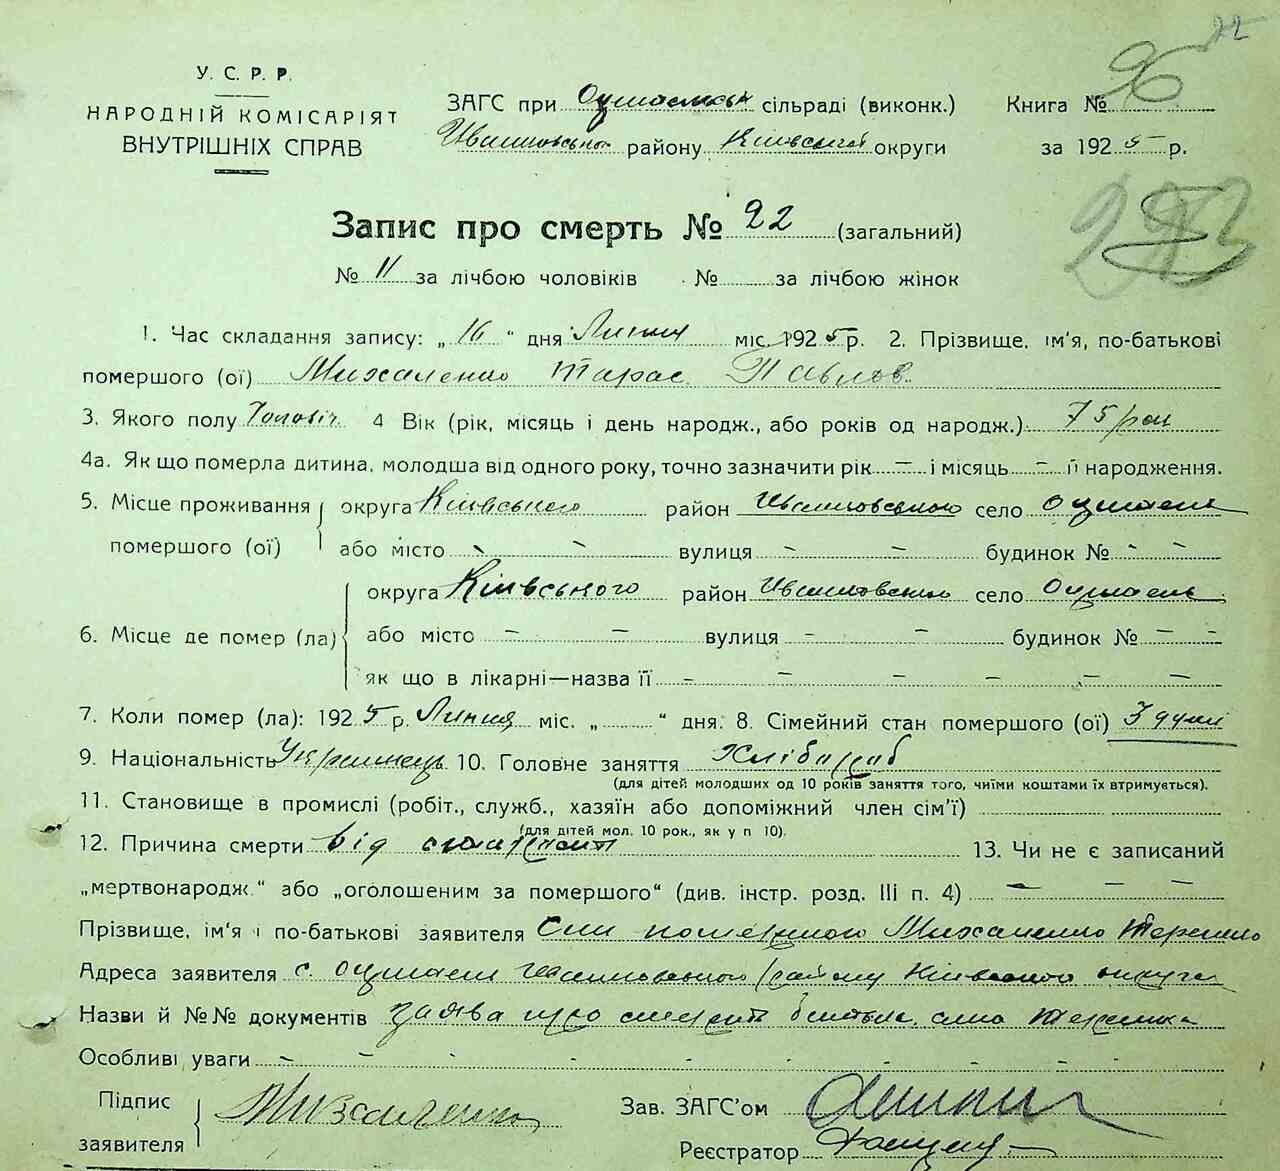 22
У. С. Р. Р.
НАРОДНІЙ КОМІСАРІЯТ
ВНУТРІШНІХ СПРАВ
ЗАГС при сільраді (виконк.) Книга № 96
району Київської округи за 1925 р.
Запис про смерть № 22 (загальний)
№ 11 за лічбою чоловіків № за лічбою жінок
1. Час складання запису: „16“ дня Липня міс. 1925 р. 2. Прізвище, ім'я, по-батькові
помершого (ої) Михаленко Тарас Павлов.
3. Якого полу Чоловіч. 4 Вік (рік, місяць і день народж., або років од народж.) 75 рок
4а. Як що померла дитина, молодша від одного року, точно зазначити рік – і місяць – її народження.
5. Місце проживання округа Київського район село
помершого (ої) або місто – – вулиця – – будинок № – –
округа Київського район село
6. Місце де помер (ла) або місто – – вулиця – – будинок № – –
як що в лікарні—назва її – – – – – –
7. Коли помер (ла): 1925 р. Липня міс. „ “ дня. 8. Сімейний стан помершого (ої) 3 душі
9. Національність Украинець 10. Головне заняття Хлібороб
(для дітей молодших од 10 років заняття того, чиїми коштами їх втримується).
11. Становище в промислі (робіт., служб., хазяїн або допоміжний член сім'ї)
(для дітей мол. 10 рок., як у п 10).
12. Причина смерти від 13. Чи не є записаний
„мертвонародж.“ або „оголошеним за помершого“ (див. інстр. розд. III п. 4) – – –
Прізвище, ім'я і по-батькові заявителя Син помершого Михаленко Терешко
Адреса заявителя с. району Київского округа
Назви й №№ документів заява про смерть батька, сина
Особливі уваги – – – – – – – – –
Підпис
заявителя Михаленко
Зав. ЗАГС'ом
Реєстратор